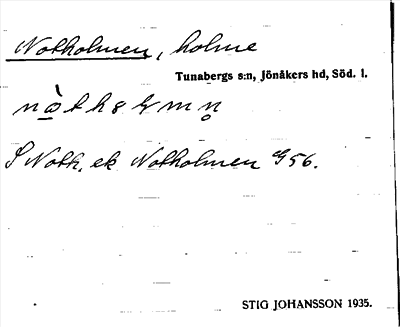 Notholmen, holme
Tunabergs s:n, Jönåkers hd, Söd. l.
S Noth. ek Notholmen G56.
STIG JOHANSSON 1935.